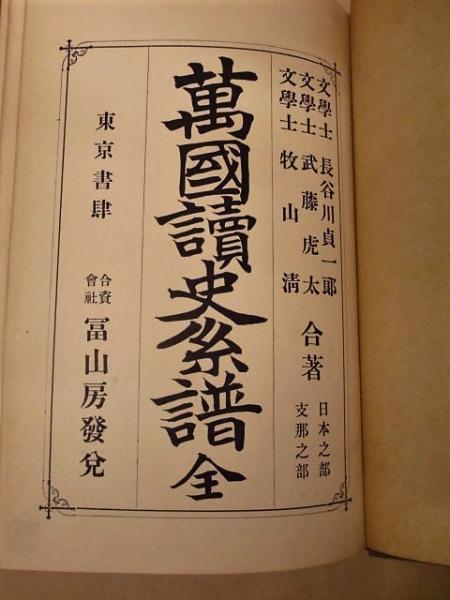 文學士 長谷川貞一郎
文學士 武藤虎太
文學士 牧山清
合著
日本之部
支那之部
萬國讀史系譜 全
東京書肆
合資
會社
冨山房發兌